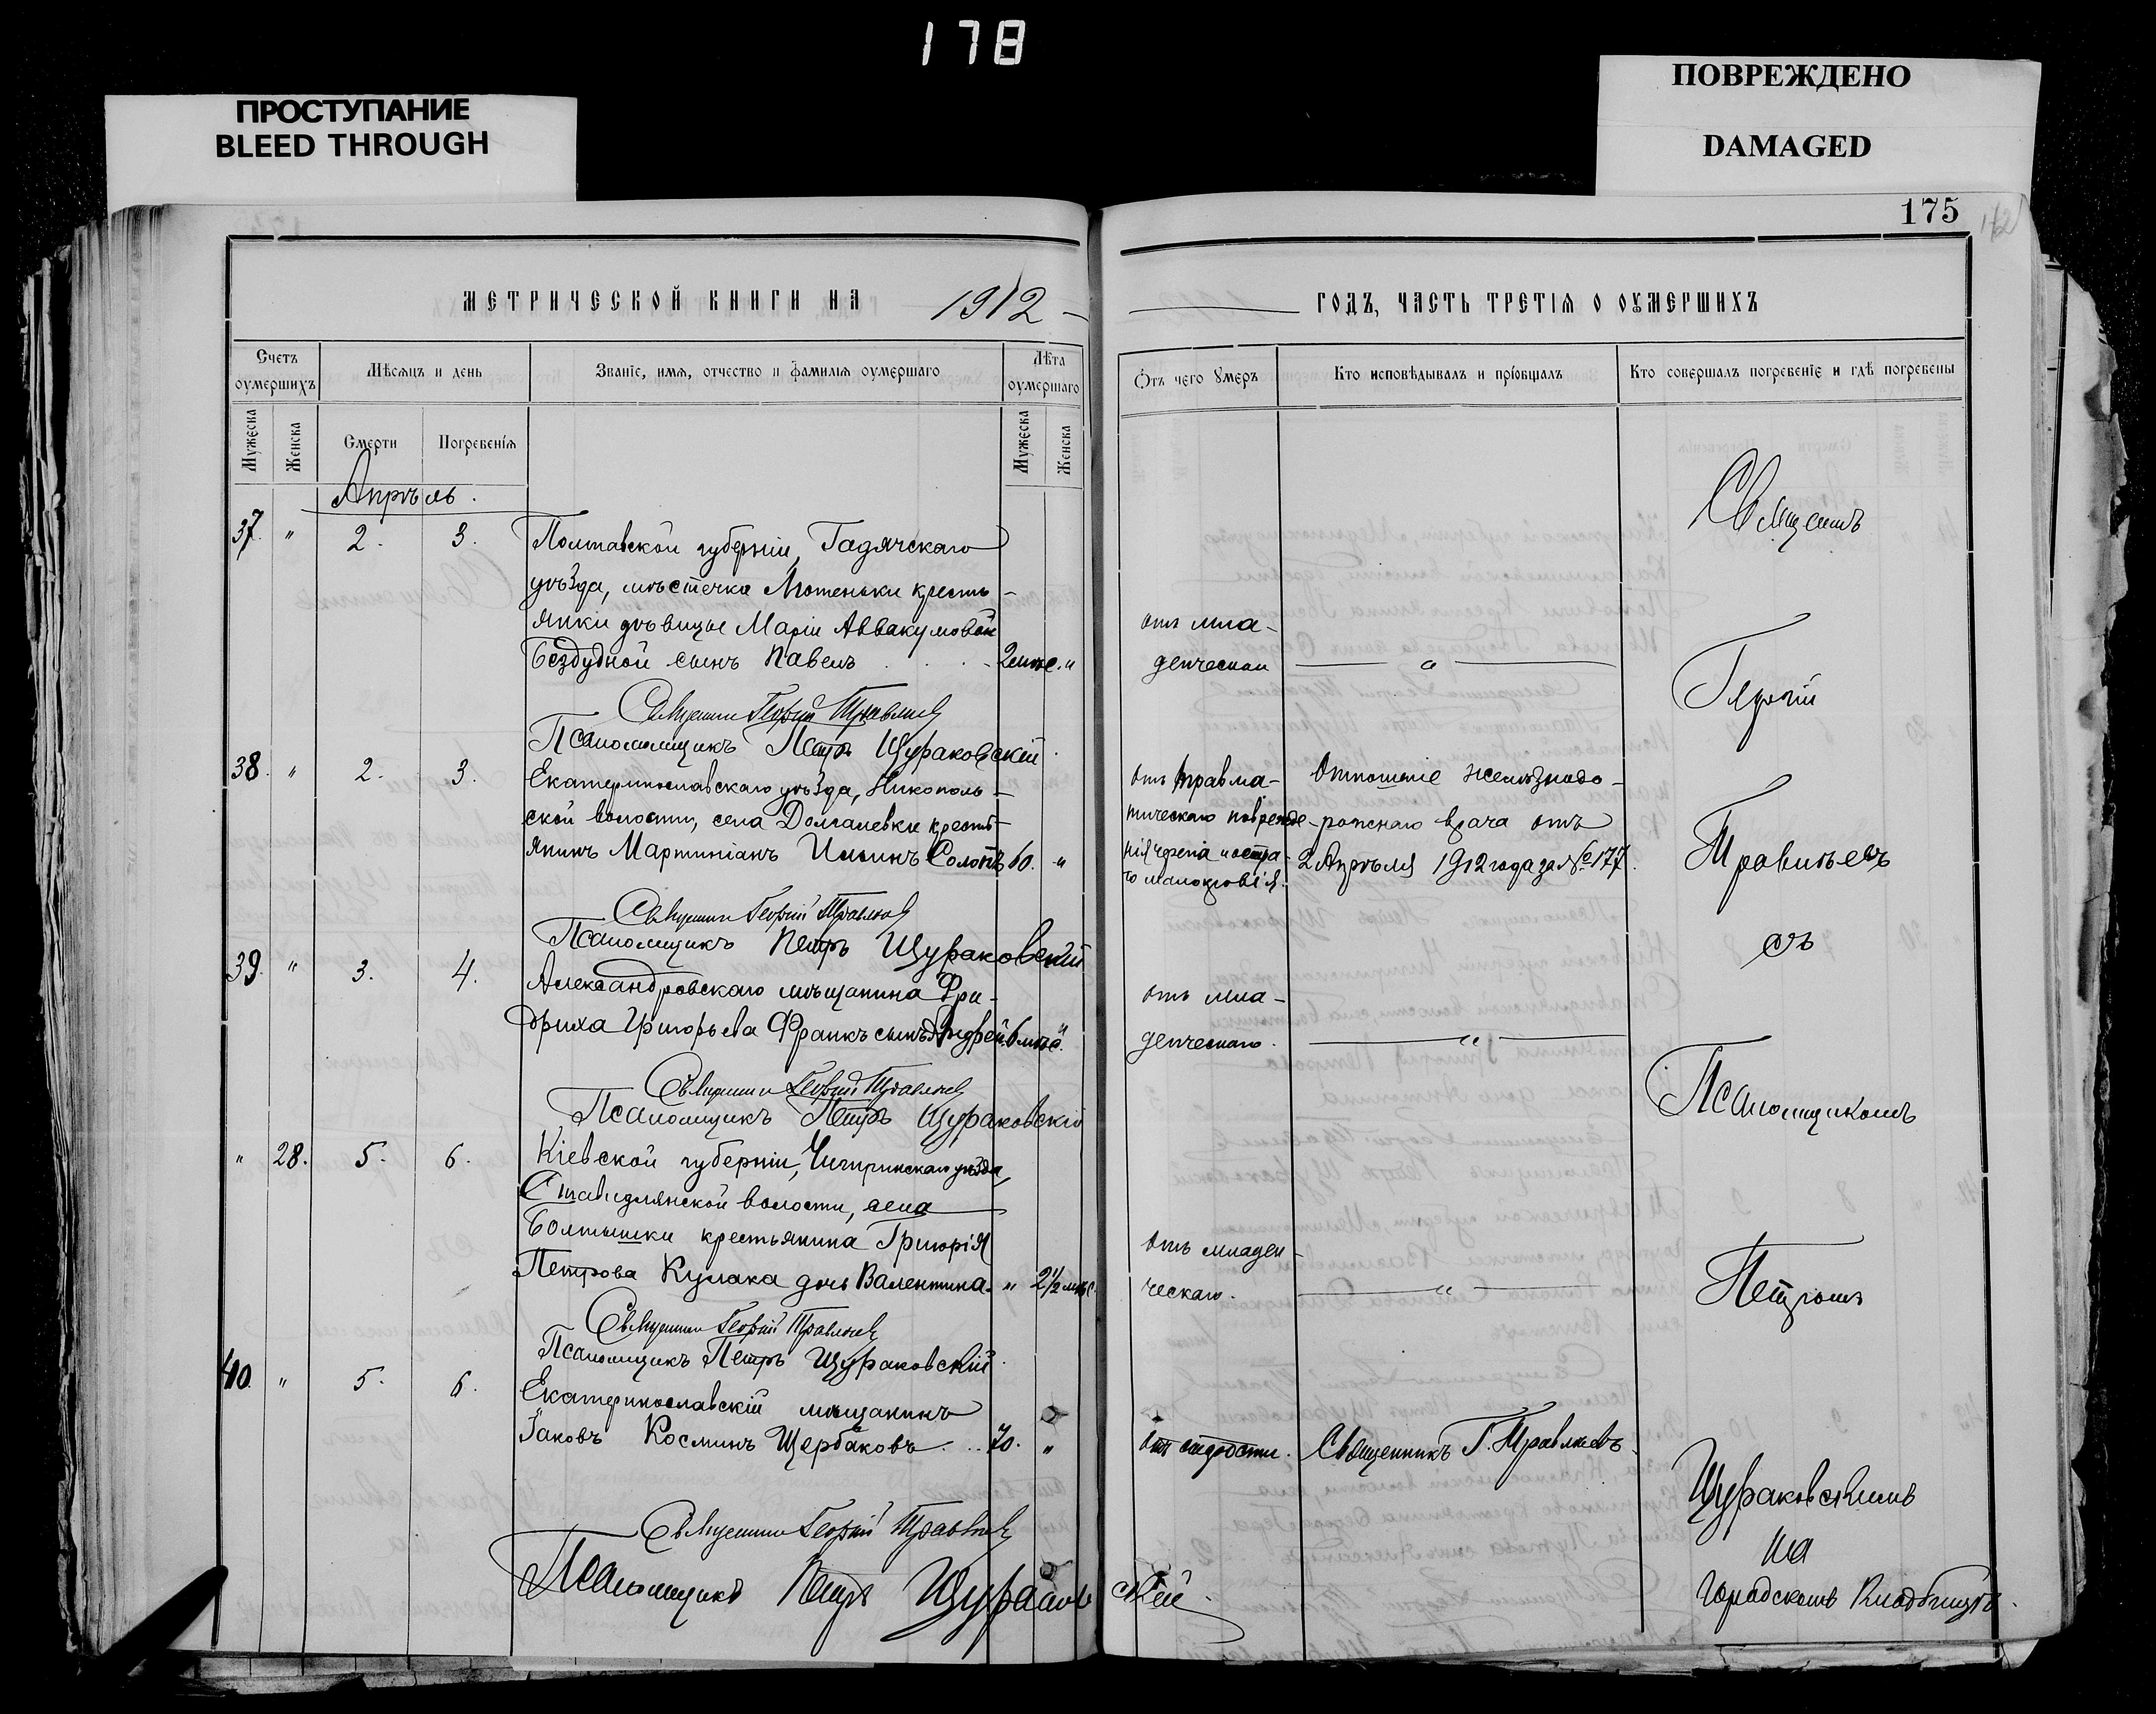 178
ПРОСТУПАНИЕ
BLEED THROUGH
ПОВРЕЖДЕНО
DAMAGED
175
МЕТРИЧЕСКОЙ КНИГИ НА 1912
ГОДЪ, ЧАСТЬ ТРЕТІЯ О ОУМЕРШИХЪ
Счетъ оумершихъ
Мѣсяцъ и день
Званіе, имя, отчество и фамилія оумершаго
Лѣта оумершаго
Отъ чего умеръ
Кто исповѣдывалъ и пріобщалъ
Кто совершалъ погребеніе и гдѣ погребены
Мужеска
Женска
Смерти
Погребенія
Мужеска
Женска
Апрѣль.
37. " 2. 3.
Полтавской губерніи, Гадячскаго
уѣзда, мѣстечка Лютеньки кресть-
янки дѣвицы Маріи Аввакумовой
Бездудной сынъ Павелъ 2 мѣс. "
отъ мла-
денческаго
Священникъ Георгій Травлѣевъ
Псаломщикъ Петръ Щураковскій.
38. " 2. 3.
Екатеринославскаго уѣзда, Никополь-
ской волости, села Долгалевки кресть-
янинъ Мартиніанъ Ильинъ 60. "
отъ травма-
тическаго поврежде-
нія черепа и остра-
го малокровія.
Отношеніе желѣзнодо-
рожнаго врача отъ
2 Апрѣля 1912 года за № 177.
Священникъ Георгій Травлѣевъ
Псаломщикъ Петръ Щураковскій
39. " 3. 4.
Александровскаго мѣщанина Фри-
дриха Григорьева Франкъ сынъ Андрей. 6 мѣс. "
отъ мла-
денческаго.
Священникъ Георгій Травлѣевъ
Псаломщикъ Петръ Щураковскій
" 28. 5. 6.
Кіевской губерніи, Чигиринскаго уѣзда,
Ставидлянской волости, села
Болтышки крестьянина Григорія
Петрова Кулака дочь Валентина. " 2½ мѣс.
отъ младен-
ческаго.
Священникъ Георгій Травлѣевъ
Псаломщикъ Петръ Щураковскій.
40. " 5. 6.
Екатеринославскій мѣщанинъ
Іаковъ Косминъ Щербаковъ 70. "
отъ старости.
Священникъ Г. Травлѣевъ
Священникъ Георгій Травлѣевъ
Псаломщикъ Петръ Щураковскій.
Священ.
Георгій
Травлѣевъ
съ
Псаломщикомъ
Петромъ
Щураковскимъ
на
городскомъ кладбищѣ.